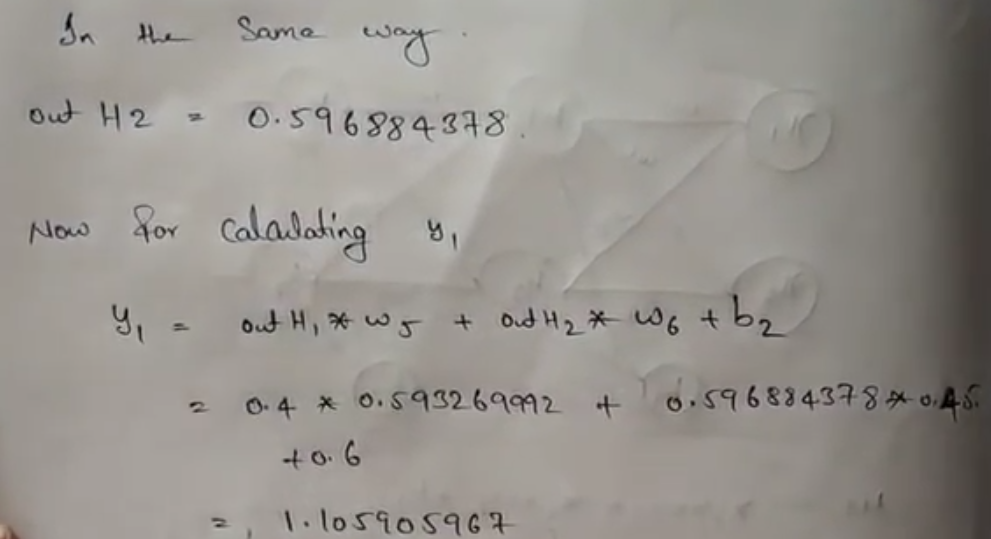 In the same way.
out H2 = 0.596884378.
Now for calculating y₁
y₁ = out H₁ * w₅ + out H₂ * w₆ + b₂
= 0.4 * 0.593269992 + 0.596884378 * 0.45
+0.6
= 1.105905967